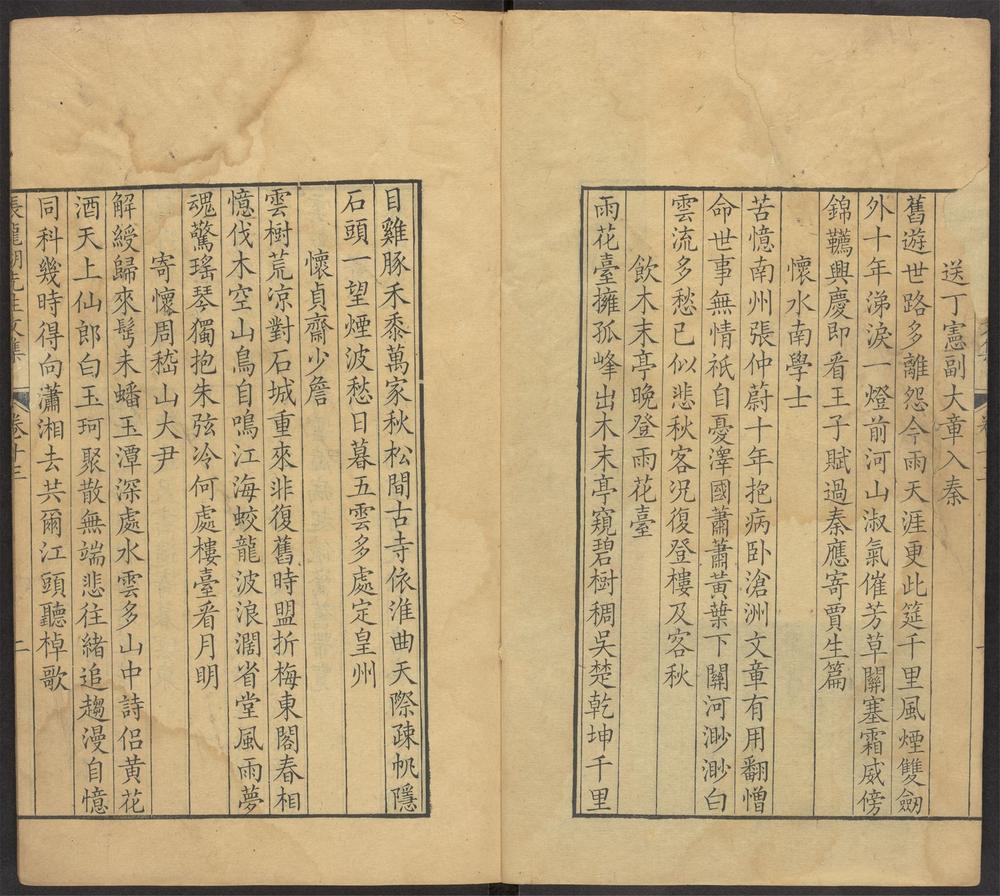 送丁憲副大章入秦
舊遊世路多離怨今雨天涯更此筵千里風煙雙劒
外十年涕淚一燈前河山淑氣催芳草關塞霜威傍
錦韉興慶即看王子賦過秦應寄賈生篇
懷水南學士
苦憶南州張仲蔚十年抱病卧滄洲文章有用翻憎
命世事無情祇自憂澤國蕭蕭黃葉下關河渺渺白
雲流多愁已似悲秋客况復登樓及客秋
飲木末亭晚登雨花臺
雨花臺擁孤峰出木末亭窺碧樹稠吳楚乾坤千里
目雞豚禾黍萬家秋松間古寺依淮曲天際疎帆隱
石頭一望煙波愁日暮五雲多處定皇州
懷貞齋少詹
雲樹荒涼對石城重來非復舊時盟折梅東閣春相
憶伐木空山鳥自鳴江海蛟龍波浪濶省堂風雨夢
魂驚瑤琴獨抱朱弦冷何處樓臺看月明
寄懷周嵇山大尹
解綬歸來髩未皤玉潭深處水雲多山中詩侶黄花
酒天上仙郎白玉珂聚散無端悲往緒追趨漫自憶
同科幾時得向瀟湘去共爾江頭聽棹歌
張龍湖先生文集 卷十三 二